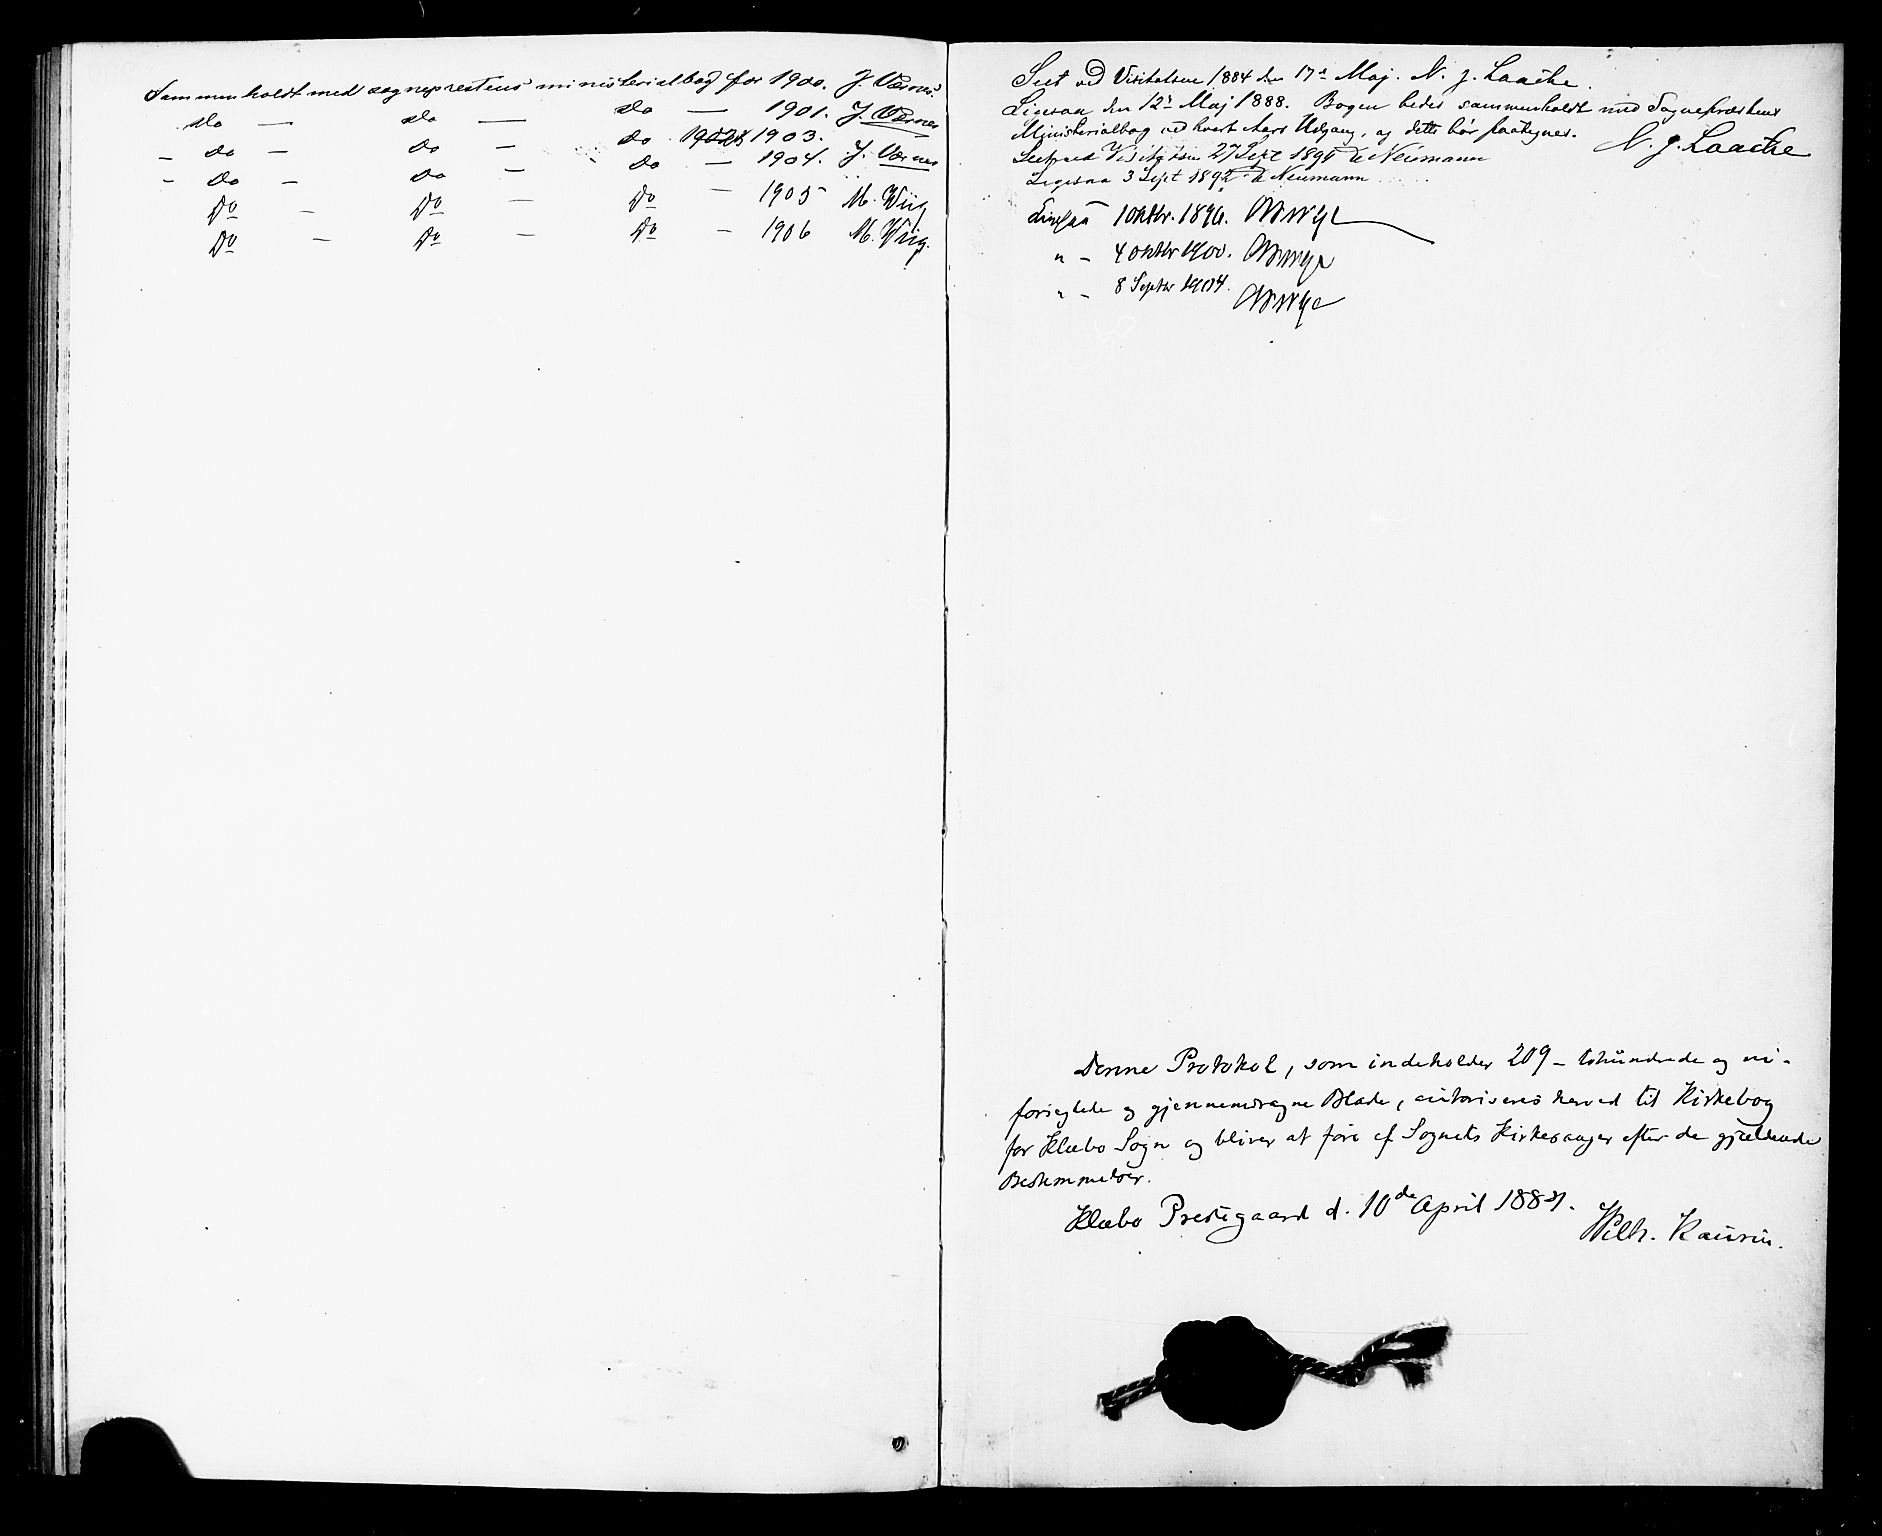 Sammenholdt med sogneprestens ministerialbog for 1900. J. Værnes.
do — do — do — 1901. J. Værnes
- do — do — do 1902 & 1903.
- do — do — do — 1904. J. Værnes
Do — Do — Do — 1905 M. Wiig
Do — Do — Do — 1906 M. Wiig.
Seet ved Visitatsen 1884 den 17de Maj. N. J. Laache.
Ligesaa den 12te Maj 1888. Bogen bedes sammenholdt med Sognepræstens
Ministerialbog ved hvert Aars Udgang, og dette bør paategnes.
N. J. Laache
Seet ved Visitatsen 27 Sept 1891 Neumann
Ligesaa 3 Sept 189 Neumann
Ligesaa 1 oktbr. 1896.
" - 4 oktbr 1900.
" - 8 Septbr 1904.
Denne Protokol, som indeholder 209 - tohundrede og ni -
forseglede og gjennemdragne Blade, autoriseres herved til Kirkebog
for Klæbo Sogn og bliver at føre af Sognets Kirkesanger efter de gjældende
Bestemmelser.
Klæbo Prestegaard d. 10de April 188.
Wilh. Kaurin.